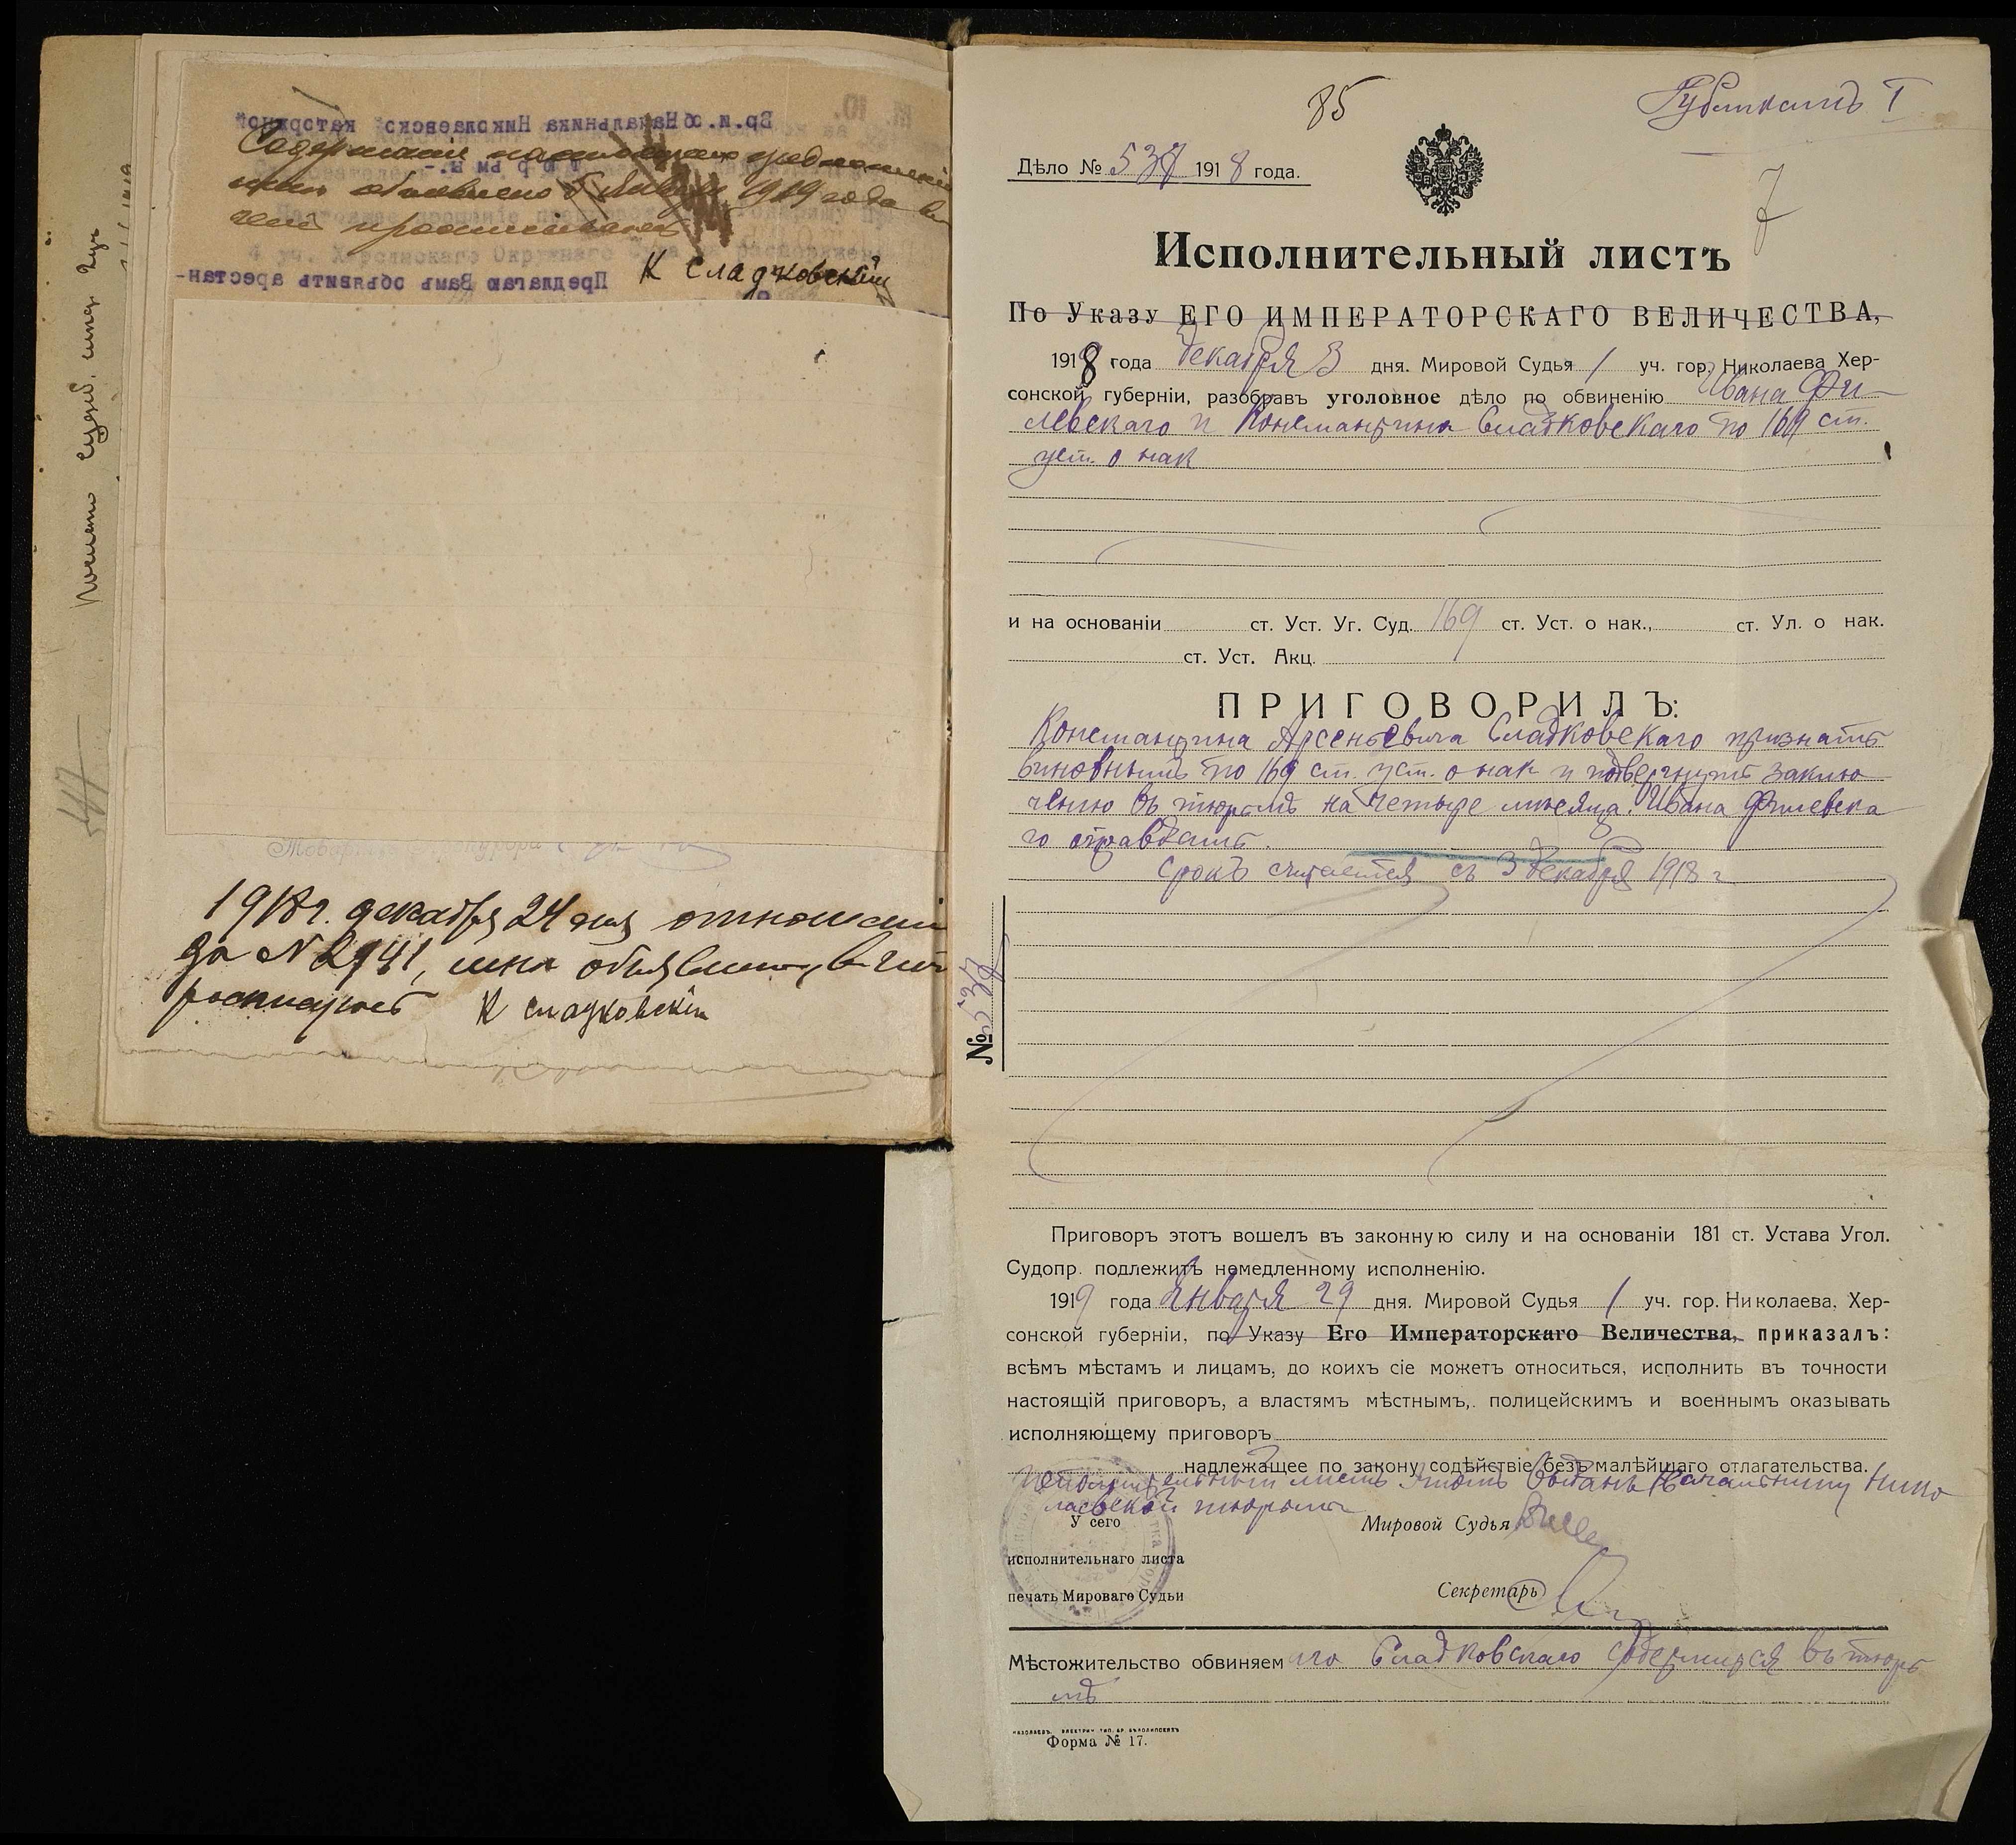 Содержаніе настоящаго предложенія
мнѣ объявлено 8 Января 1919 года въ
чемъ
К Сладковскій
1918 г. декабря 24 дня отношеніе
за № 2941, мнѣ объявлено, въ чемъ
К Сладковскій
547
85
7
Дѣло № 537 1918 года.
Исполнительный листъ
По Указу ЕГО ИМПЕРАТОРСКАГО ВЕЛИЧЕСТВА,
1918 года декабря 3 дня. Мировой Судья 1 уч. гор. Николаева Хер-
сонской губерніи, разобравъ уголовное дѣло по обвиненію Ивана Фи-
левскаго и Константина Сладковскаго по 169 ст.
уст. о нак
и на основаніи ст. Уст. Уг. Суд. 169 ст. Уст. о нак., ст. Ул. о нак.
ст. Уст. Акц.
ПРИГОВОРИЛЪ:
Константина Арсеньевича Сладковскаго признать
виновнымъ по 169 ст. уст. о нак и подвергнуть заклю
ченію въ тюрьмѣ на четыре мѣсяца. Ивана Филевска
го оправдать.
Срокъ считается съ 3 декабря 1918 г
№ 537
Приговоръ этотъ вошелъ въ законную силу и на основаніи 181 ст. Устава Угол.
Судопр. подлежитъ немедленному исполненію.
1919 года Января 29 дня. Мировой Судья 1 уч. гор. Николаева, Хер-
сонской губерніи, по Указу Его Императорскаго Величества, приказалъ:
всѣмъ мѣстамъ и лицамъ, до коихъ сіе можетъ относиться, исполнить въ точности
настоящій приговоръ, а властямъ мѣстнымъ, полицейскимъ и военнымъ оказывать
исполняющему приговоръ
надлежащее по закону содѣйствіе безъ малѣйшаго отлагательства.
Исполнительный листъ этотъ выданъ Начальнику Нико
лаевской тюрьмы
У сего
исполнительнаго листа
печать Мироваго Судьи
Мировой Судья
Секретарь
Мѣстожительство обвиняемаго Сладковскаго содержится въ тюрь
мѣ
Форма № 17.